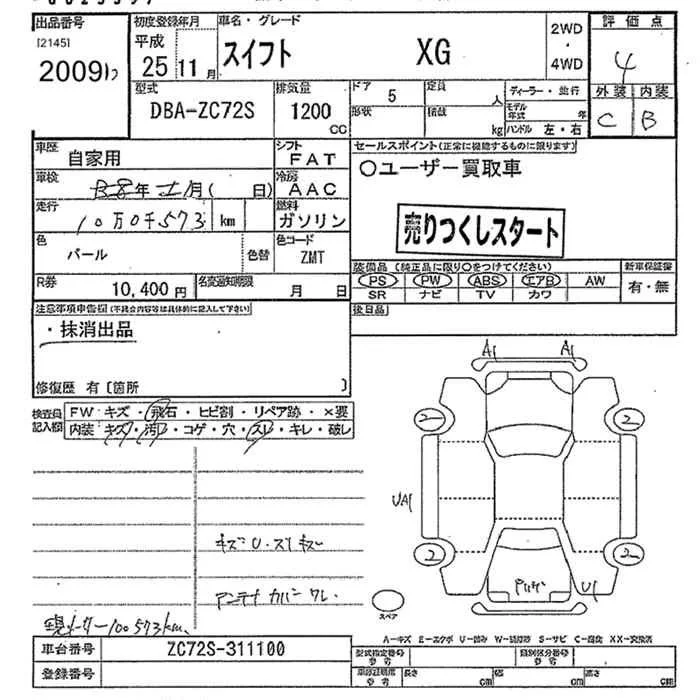 出品番号 初度登録年月 車名・グレード 2WD・4WD 評価点
[2145]
20091 平成 25年 11月 スイフト XG 4
型式 排気量 ドア 定員 ディーラー・並行 外装 内装
DBA-ZC72S 1200 CC 5 人 モデル年式 年 C B
形状 積載 kg ハンドル 左・右
車歴 自家用 シフト FAT セールスポイント(正常に機能するものに限ります)
車検 年 月( 日) 冷房 AAC 〇ユーザー買取車
走行 10万0千573 km 燃料 ガソリン 売りつくしスタート
色 パール 色替 色コード ZMT
装備品 (純正品に限り〇をつけてください) 新車保証書
R券 10,400円 名変通知期限 月 日 PS PW ABS エアB AW 有・無
SR ナビ TV カワ
注意事項申告欄(不具合内容等は具体的に記入して下さい) 後日品
・抹消出品
修復歴 有 [箇所 ]
検査員記入欄 FW:キズ・飛石・ヒビ割・リペア跡・×要
内装:キズ・汚レ・コゲ・穴・スレ・キレ・破レ
A1 A1
2 2
UA1
2 2
U1
キズU.スリキズ
アンテナカバーワレ
スペア
現メーター100573km
A-キズ E-エクボ U-凹み W-波修跡 S-サビ C-腐食 XX-交換済
車台番号 ZC72S-311100 型式指定番号 参考 類別区分番号 参考
登録番号 車検証寸法 参考 長さ cm 幅 cm 高さ cm